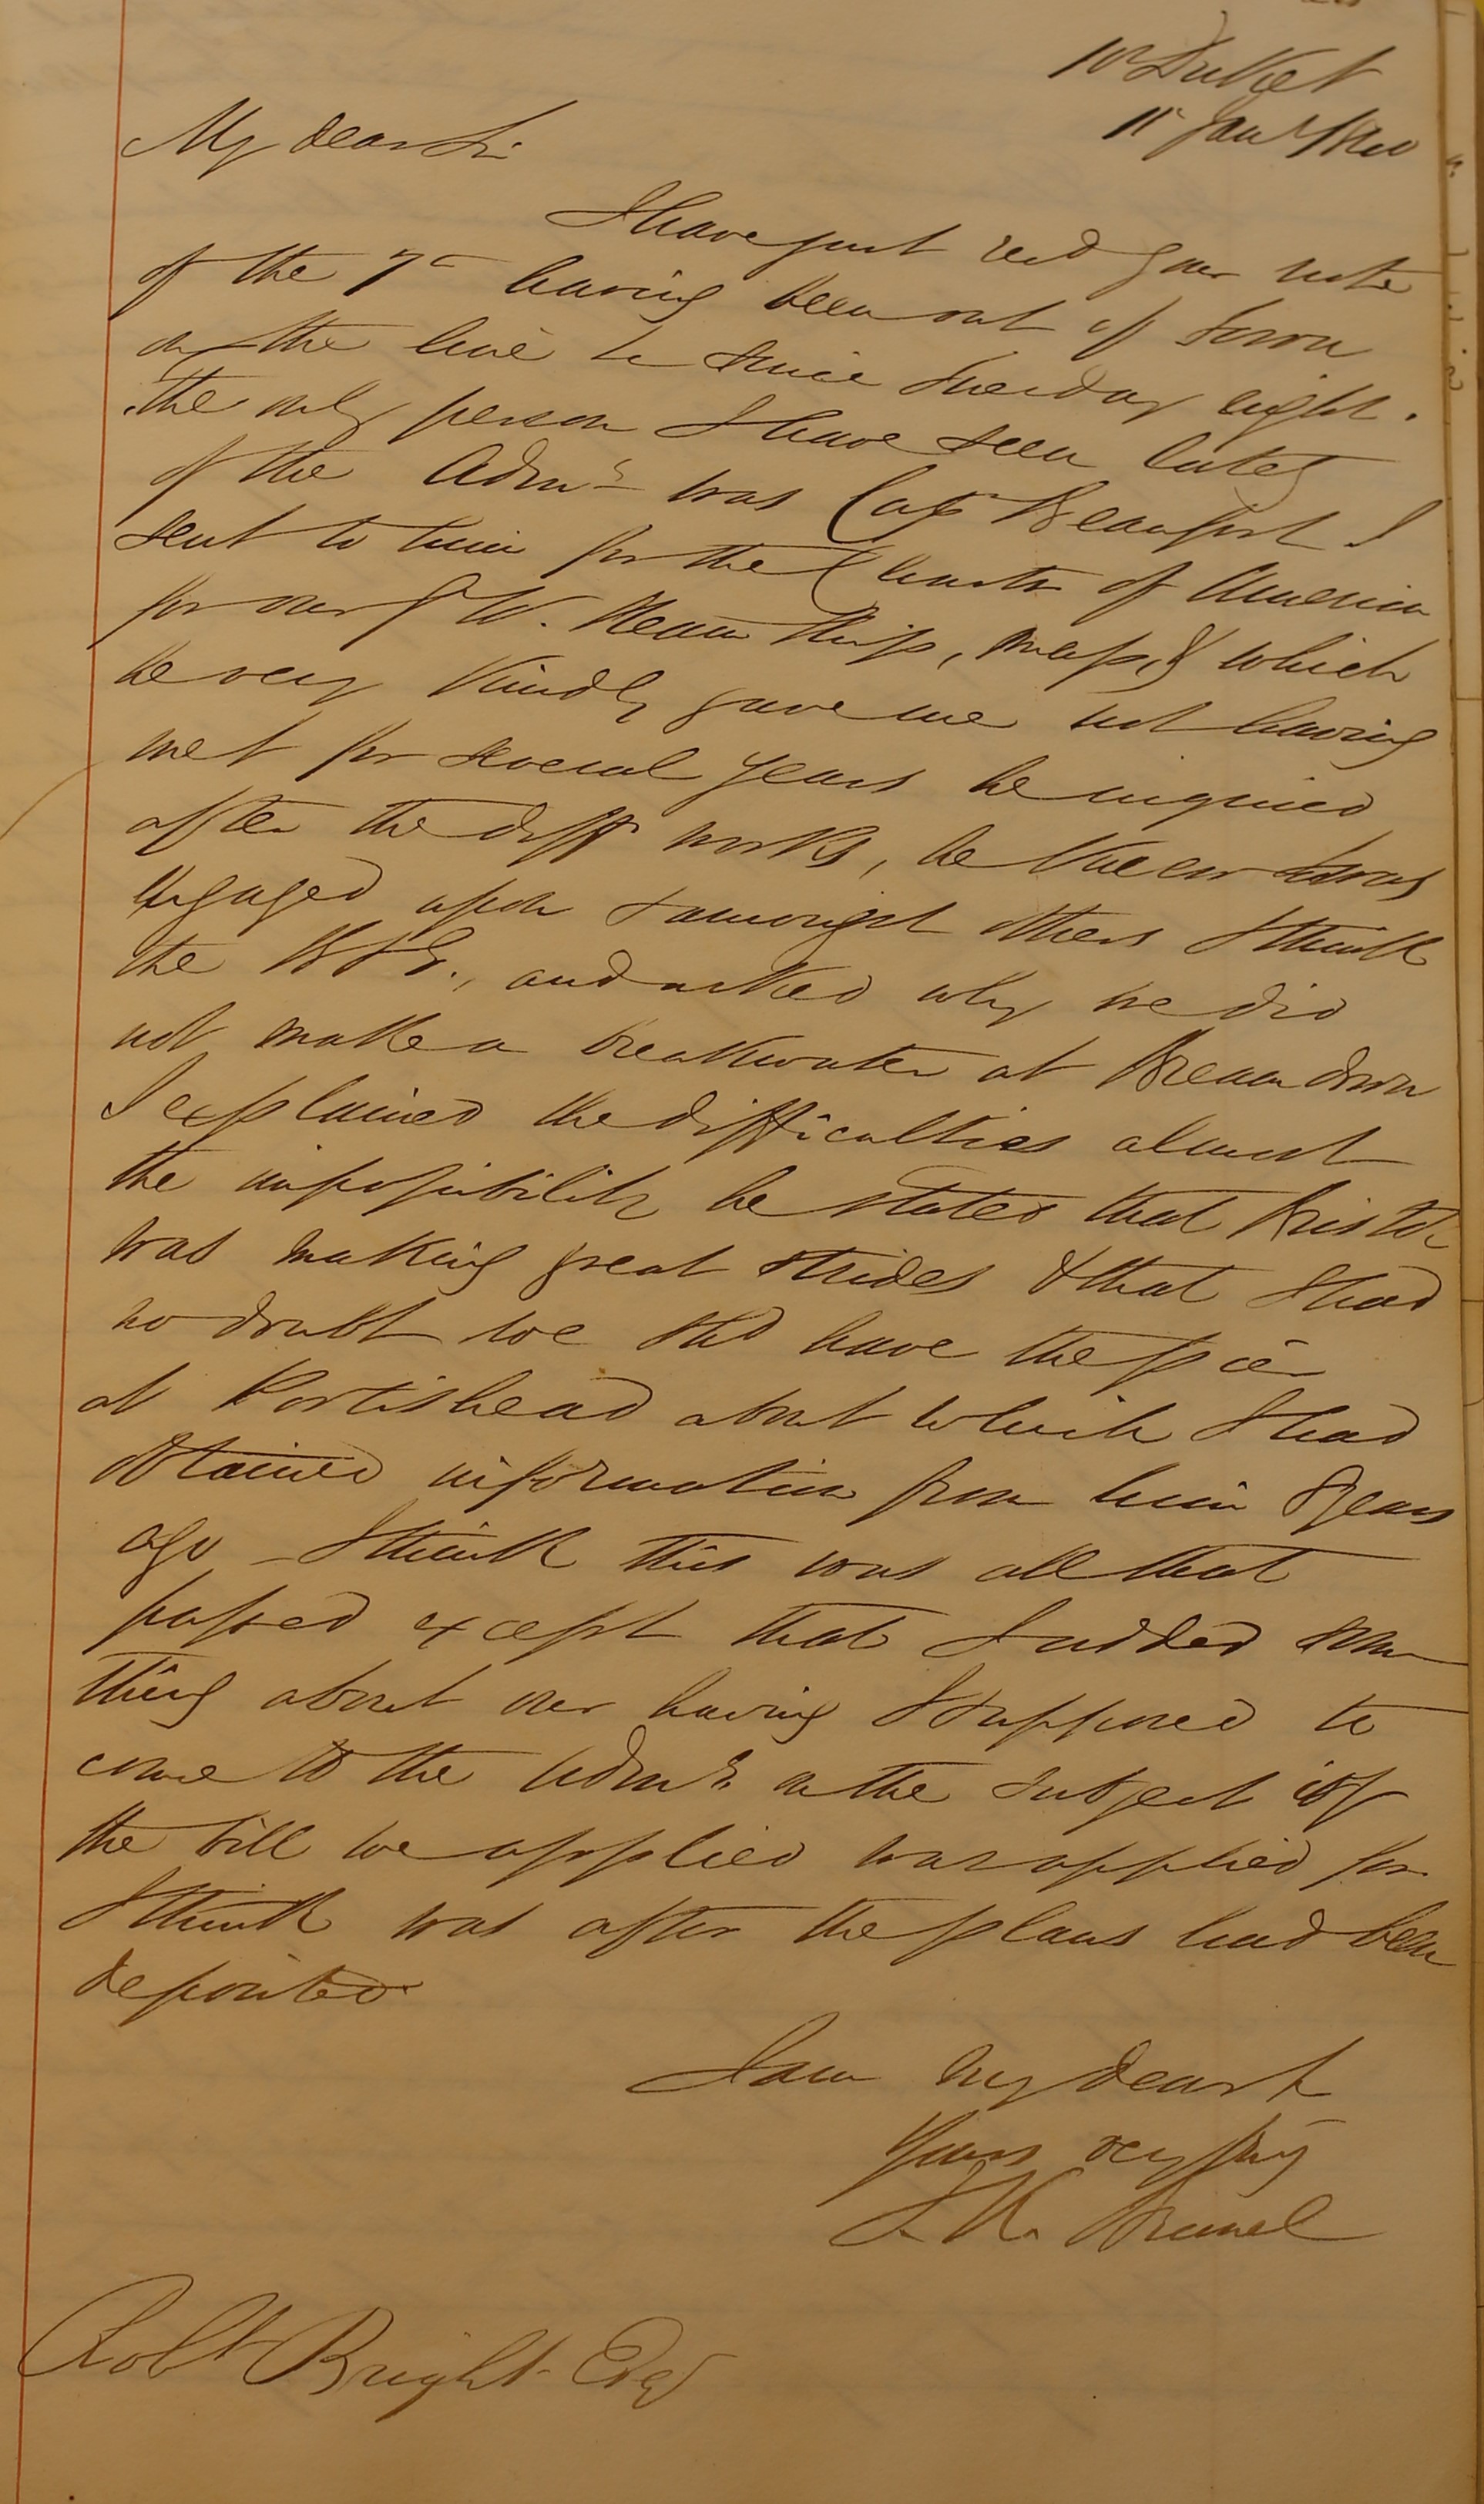 18 Duke St
11 Jany 1840
My dear Sir
I have just recd your note
of the 7th having been out of town
on the line since Tuesday night.
the only person I have seen lately
of the Admy was Capt Beaufort I
sent to him for the Charts of America
for our G W. Steam Ship, maps & which
he very kindly gave me not having
met for several years he inquired
after the difft works, he knew I was
engaged upon & amongst others I think
the B & E., and asked why we did
not make a breakwater at Brean down
I explained the difficulties almost
the impossibility he stated that Bristol
was making great strides & that I had
no doubt we shd have the pier
at Portishead about which I had
obtained information from him 8 years
ago - I think this was all that
passed except that I added some
thing about our having I supposed to
come to the Admy on the subject if
the bill we applied was applied for
I think was after the plans had been
deposited
I am my dear Sr
Yours very fthy
I. K. Brunel
Robt Bright Esq